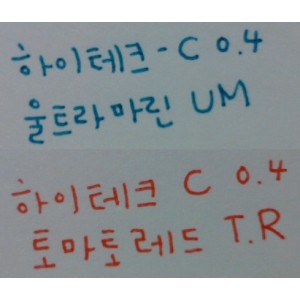 하이테크-C 0.4
울트라마린 UM
하이테크 C 0.4
토마토레드 T.R